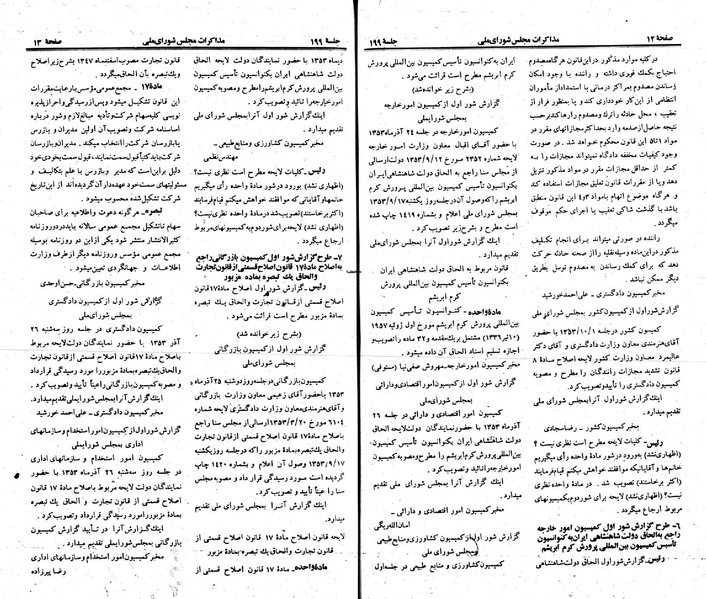 صفحهٔ ۱۲
مذاکرات مجلس شورای ملی
جلسهٔ ۱۹۹
در کلیه موارد مذکور در این قانون هرگاه مصدوم
احتیاج بکمک فوری داشته و راننده با وجود امکان
رساندن مصدوم بمراکز درمانی یا استمداد از مأموران
انتظامی از این کار خودداری کند و یا بمنظور فرار از
تعقیب، محل حادثه را ترک و مصدوم را رها کند بر حسب
وجود کیفیات مخففه دادگاه نمیتواند مجازات را به
کمتر از حداقل مجازات مقرر در مواد مذکور تنزیل
دهد و یا از مقررات قانون تعلیق مجازات استفاده کند
باشد با گذشت شاکی تعقیب یا اجرای حکم موقوف
میگردد.
راننده در صورتی میتواند برای انجام تکلیف
مذکور در این ماده وسیله نقلیه را از صحنه حادثه حرکت
دهد که برای کمک رساندن به مصدوم توسل بطریق
دیگر ممکن نباشد.
مخبر کمیسیون دادگستری ـ علی احمد خورشید
گزارش شور اول از کمیسیون کشور بمجلس شورای ملی
کمیسیون کشور در جلسه ۱۳۵۳/۱۰/۱ با حضور
آقای هنرمندی معاون وزارت دادگستری و آقای دکتر
عالیمرد معاون وزارت کشور لایحه اصلاح مادهٔ ۸
قانون تشدید مجازات رانندگان را مطرح و مصوبه
کمیسیون دادگستری را تأیید و تصویب کرد.
اینک گزارش شور اول آنرا بمجلس شورای ملی تقدیم
میدارد.
مخبر کمیسیون کشور ـ رضا سجادی
رئیس ـ کلیات لایحه مطرح است نظری نیست؟
(اظهاری نشد) بورود در شور مادهٔ واحده رأی میگیریم
خانمها و آقایانیکه موافقند خواهش میکنم قیام فرمایند
(اکثر برخاستند) تصویب شد. در مادهٔ واحده نظری
نیست؟ (اظهاری نشد) لایحه برای شور دوم بکمیسیونهای
مربوط ارجاع میگردد
۶ـ طرح گزارش شور اول کمیسیون امور خارجه
راجع به الحاق دولت شاهنشاهی ایران به کنوانسیون
تأسیس کمیسیون بین‌المللی پرورش کرم ابریشم
رئیس ـ گزارش شور اول الحاق دولت شاهنشاهی
ایران به کنوانسیون تأسیس کمیسیون بین‌المللی پرورش
کرم ابریشم مطرح است قرائت می‌شود.
(بشرح زیر خوانده شد)
گزارش شور اول از کمیسیون امور خارجه
بمجلس شورای ملی
کمیسیون امور خارجه در جلسه ۲۴ آذر ماه ۱۳۵۳
با حضور آقای اقبال معاون وزارت امور خارجه
لایحه شماره ۲۳۵۲ مورخ ۱۳۵۳/۹/۱۲ دولت ارسالی
از مجلس سنا راجع به الحاق دولت شاهنشاهی ایران
بکنوانسیون تأسیس کمیسیون بین‌المللی پرورش کرم
ابریشم را که وصول آن در جلسه روز یکشنبه ۱۳۵۳/۹/۱۷
مجلس شورای ملی اعلام و بشماره ۱۴۱۹ چاپ شده
است بشرح زیر تصویب کرد.
اینک گزارش شور اول آنرا بمجلس شورای ملی
تقدیم میدارد.
قانون مربوط به الحاق دولت شاهنشاهی ایران
بکنوانسیون تأسیس کمیسیون بین‌المللی پرورش
کرم ابریشم
مادهٔ واحده ـ کنوانسیون تأسیس کمیسیون
بین‌المللی پرورش کرم ابریشم مورخ اول ژوئیه ۱۹۵۷
(۱۰ تیر ۱۳۳۶) مشتمل بر یک مقدمه و ۳۷ ماده را تصویب و
اجازه تسلیم اسناد الحاق آن داده میشود.
مخبر کمیسیون امور خارجه ـ مهروش صفی‌نیا (مستوفی)
گزارش شور اول از کمیسیون امور اقتصادی و دارائی
بمجلس شورای ملی
کمیسیون امور اقتصادی و دارائی در جلسه ۲۶
آذر ماه ۱۳۵۳ با حضور نمایندگان دولت لایحه الحاق
دولت شاهنشاهی ایران بکنوانسیون تأسیس کمیسیون
بین‌المللی پرورش کرم ابریشم را مطرح و مصوبه کمیسیون
امور خارجه را تأیید و تصویب کرد.
اینک گزارش شور اول آنرا بمجلس شورای ملی تقدیم
میدارد.
مخبر کمیسیون امور اقتصادی و دارائی ـ
امان‌الله ریگی
گزارش شور اول از کمیسیون کشاورزی و منابع طبیعی
بمجلس شورای ملی
کمیسیون کشاورزی و منابع طبیعی در جلسه اول
جلسهٔ ۱۹۹
مذاکرات مجلس شورای ملی
صفحهٔ ۱۳
دیماه ۱۳۵۳ با حضور نمایندگان دولت لایحه الحاق
دولت شاهنشاهی ایران بکنوانسیون تأسیس کمیسیون
بین‌المللی پرورش کرم ابریشم را مطرح و مصوبه کمیسیون
امور خارجه را تأیید و تصویب کرد.
اینک گزارش شور اول آنرا بمجلس شورای ملی
تقدیم میدارد.
مخبر کمیسیون کشاورزی و منابع طبیعی ـ
مهندس نظمی
رئیس ـ کلیات لایحه مطرح است نظری نیست؟
(اظهاری نشد) بورود در شور مادهٔ واحده رأی میگیریم
خانمها و آقایانی که موافقند خواهش میکنم قیام فرمایند
(اکثر برخاستند) تصویب شد در مادهٔ واحده نظری نیست؟
(اظهاری نشد) لایحه برای شور دوم به کمیسیونهای مربوط
ارجاع میگردد.
۷ـ طرح گزارش شور اول کمیسیون بازرگانی راجع
به اصلاح مادهٔ ۱۷ قانون اصلاح قسمتی از قانون تجارت
و الحاق یک تبصره بماده مزبور
رئیس ـ گزارش شور اول اصلاح مادهٔ ۱۷ قانون
اصلاح قسمتی از قانون تجارت و الحاق یک تبصره
بمادهٔ مزبور مطرح است قرائت می‌شود.
(بشرح زیر خوانده شد)
گزارش شور اول از کمیسیون بازرگانی
بمجلس شورای ملی
کمیسیون بازرگانی در جلسه روز دوشنبه ۲۵ آذر ماه
۱۳۵۳ با حضور آقای زعیمی معاون وزارت بازرگانی
و آقای هنرمندی معاون وزارت دادگستری لایحه شماره
۶۱۰۴ ـ ۱۳۵۳/۳/۲۰ ارسالی از مجلس سنا راجع
به اصلاح مادهٔ ۱۷ قانون اصلاح قسمتی از قانون تجارت
و الحاق یک تبصره بماده مزبور را که در جلسه روز یکشنبه
۱۳۵۳/۹/۱۷ وصول آن اعلام و بشماره ۱۴۲۰ چاپ
گردیده است مورد رسیدگی قرار داد و مصوبه مجلس
سنا را عیناً تأیید و تصویب کرد.
اینک گزارش آنرا بمجلس شورای ملی تقدیم
میدارد.
لایحه قانونی اصلاح ماده ۱۷ قانون اصلاح قسمتی از
قانون تجارت و الحاق یک تبصره بماده مزبور
مادهٔ واحده ـ مادهٔ ۱۷ قانون اصلاح قسمتی از
قانون تجارت مصوب اسفند ماه ۱۳۴۷ بشرح زیر اصلاح
و یک تبصره بآن الحاق میگردد.
مادهٔ ۱۷ـ مجمع عمومی مؤسس با رعایت مقررات
این قانون تشکیل میشود و پس از رسیدگی و احراز پذیره
نویسی کلیه سهام شرکت و تأدیه مبالغ لازم و شور درباره
اساسنامه شرکت و تصویب آن اولین مدیران و بازرس
یا بازرسان شرکت را انتخاب میکند. مدیران و بازرسان
شرکت باید کتباً قبول سمت نمایند، قبول سمت بخودی خود
دلیل بر این است که مدیر و بازرس با علم بتکالیف و
مسئولیتهای سمت خود عهده‌دار آن گردیده‌اند از این تاریخ
شرکت تشکیل شده محسوب میشود.
تبصره ـ هرگونه دعوت و اطلاعیه برای صاحبان
سهام تا تشکیل مجمع عمومی سالانه باید در دو روزنامه
کثیرالانتشار منتشر شود یکی از این دو روزنامه بوسیله
مجمع عمومی مؤسس و روزنامه دیگر از طرف وزارت
اطلاعات و جهانگردی تعیین میشود.
مخبر کمیسیون بازرگانی ـ حسن اوحدی
گزارش شور اول از کمیسیون دادگستری
بمجلس شورای ملی
کمیسیون دادگستری در جلسه روز سه‌شنبه ۲۶
آذر ۱۳۵۳ با حضور نمایندگان دولت لایحه مربوط
به اصلاح مادهٔ ۱۷ قانون اصلاح قسمتی از قانون تجارت
و الحاق یک تبصره بمادهٔ مزبور را مورد رسیدگی قرار داد
و مصوبه کمیسیون بازرگانی را عیناً تأیید و تصویب کرد.
اینک گزارش آنرا بمجلس شورای ملی تقدیم میدارد.
مخبر کمیسیون دادگستری ـ علی احمد خورشید
گزارش شور اول از کمیسیون امور استخدام و سازمانهای
اداری بمجلس شورای ملی
کمیسیون امور استخدام و سازمانهای اداری
در جلسه روز سه‌شنبه ۲۶ آذر ماه ۱۳۵۳ با حضور
نمایندگان دولت لایحه مربوط به اصلاح مادهٔ ۱۷ قانون
اصلاح قسمتی از قانون تجارت و الحاق یک تبصره
بماده مزبور را مورد رسیدگی قرار داد و تصویب کرد.
اینک گزارش آنرا در تأیید گزارش کمیسیون
بازرگانی بمجلس شورای ملی تقدیم میدارد.
مخبر کمیسیون امور استخدام و سازمانهای اداری
رضا پیرزاده